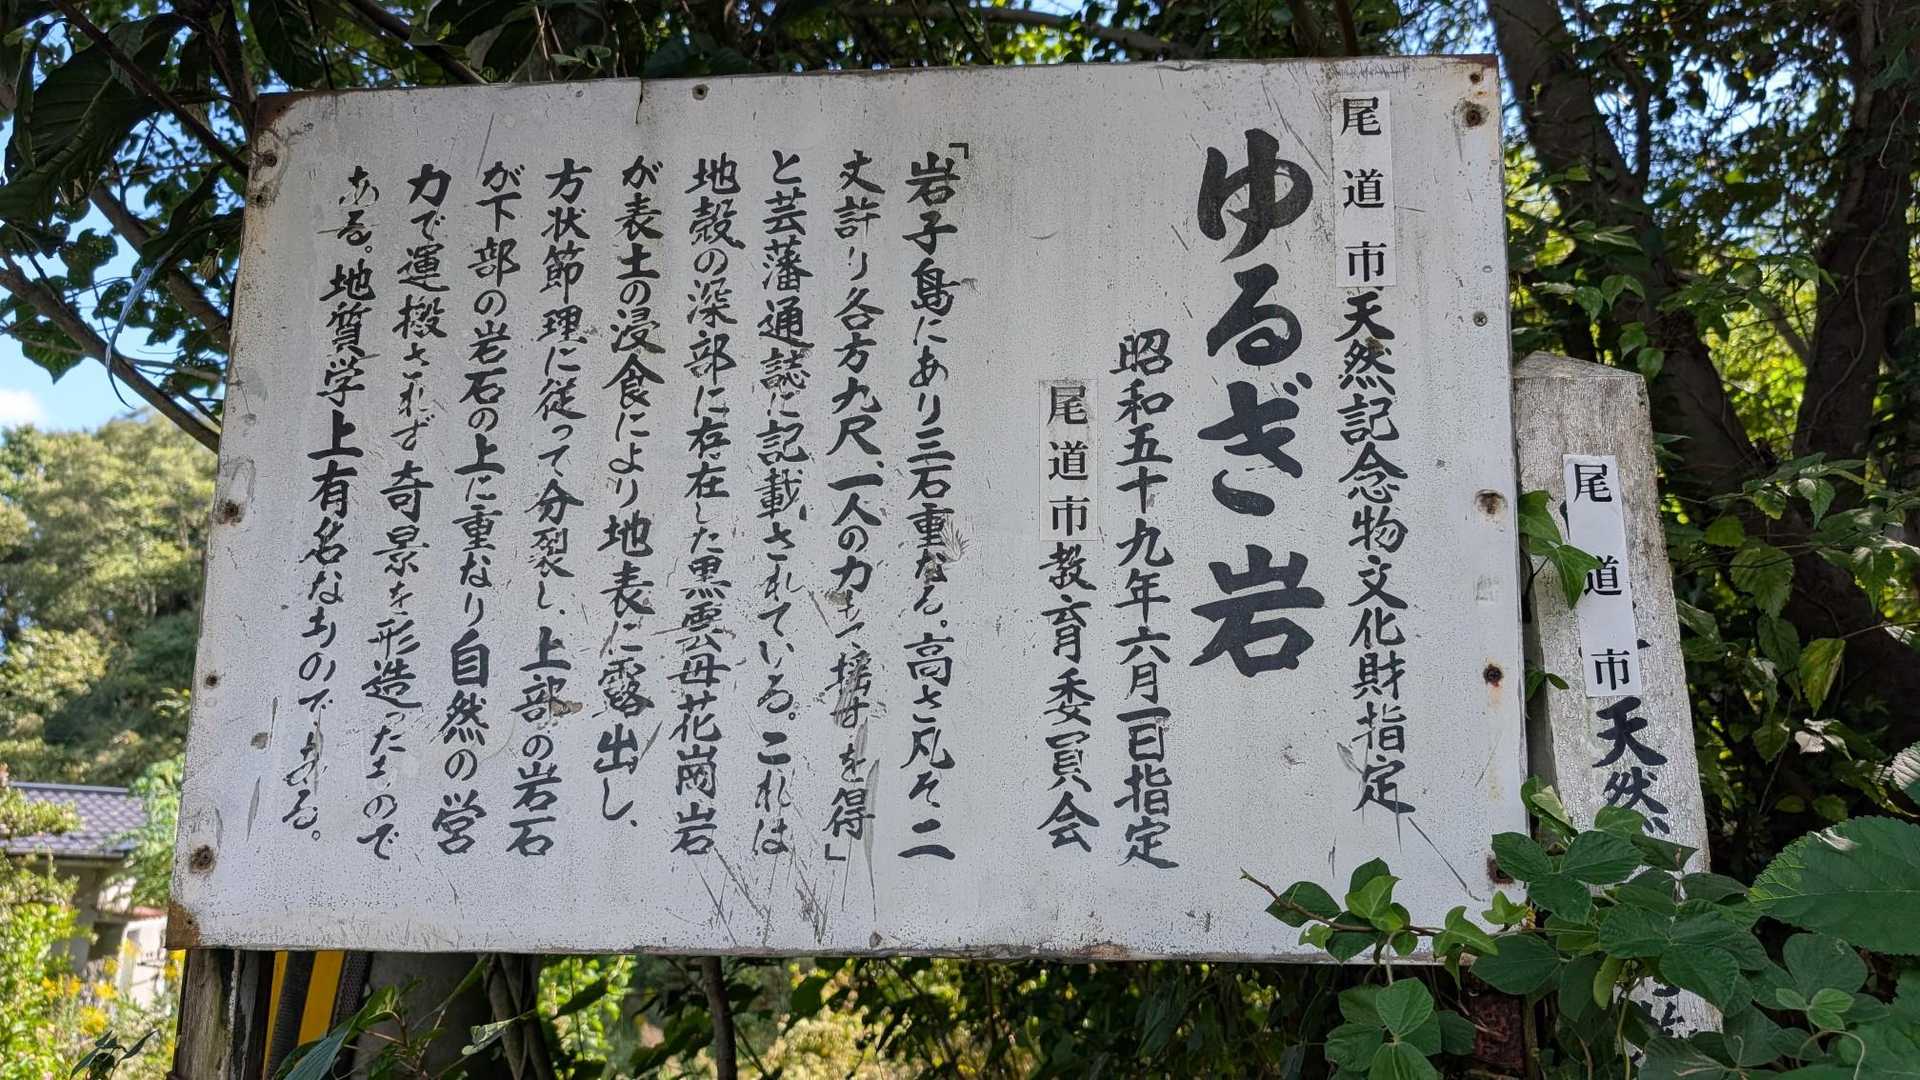 尾道市天然記念物文化財指定
ゆるぎ岩
昭和五十九年六月一日指定
尾道市教育委員会
「岩子島にあり三石重なる。高さ凡そ二
丈許り各方九尺、一人の力もて揺すを得」
と芸藩通誌に記載されている。これは
地殻の深部に存在した黒雲母花崗岩
が表土の浸食により地表に露出し、
方状節理に従って分裂し、上部の岩石
が下部の岩石の上に重なり自然の営
力で運搬されず奇景を形造ったもので
ある。地質学上有名なものである。
尾道市天然